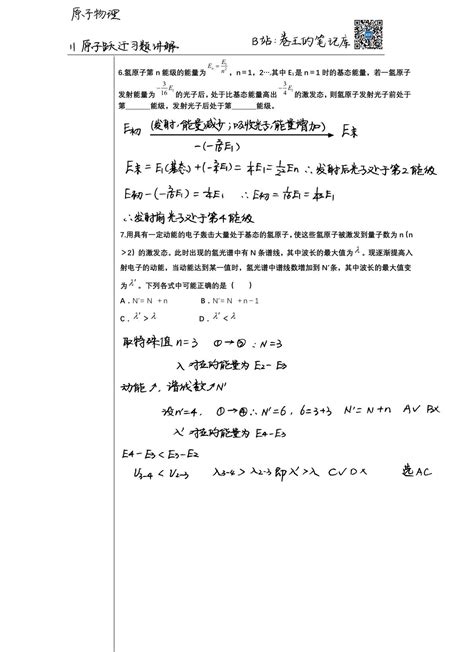 原子物理
11 原子跃迁习题讲解
B站:卷王的笔记库
6.氢原子第 n 能级的能量为 Eₙ=E₁/n², n=1, 2….其中 E₁ 是 n=1 时的基态能量,若一氢原子
发射能量为 -3/16 E₁ 的光子后,处于比基态能量高出 -3/4 E₁ 的激发态,则氢原子发射光子前处于
第______能级,发射光子后处于第______能级。
E初 (发射,能量减少;吸收光子,能量增加) → E末
-(-3/16 E₁)
E末 = E₁(基态) + (-3/4 E₁) = 1/4 E₁ = 1/2² Eₙ ∴发射后光子处于第2能级
E初 - (-3/16 E₁) = 1/4 E₁ ∴ E初 = 1/16 E₁ = 1/4² E₁
∴发射前光子处于第4能级
7.用具有一定动能的电子轰击大量处于基态的氢原子,使这些氢原子被激发到量子数为 n(n
>2)的激发态,此时出现的氢光谱中有 N 条谱线,其中波长的最大值为 λ 。现逐渐提高入
射电子的动能,当动能达到某一值时,氢光谱中谱线数增加到 N′条,其中波长的最大值变
为 λ′ 。下列各式中可能正确的是( )
A.N′= N +n B.N′= N +n-1
C.λ′>λ D.λ′<λ
取特殊值 n=3 ①→③ : N=3
λ 对应的能量为 E₂-E₃
动能↗,谱线数↗N′
设n′=4. ①→④∴N′=6, 6=3+3 N′= N+n A√ B×
λ′ 对应的能量为 E₄-E₃
E₄-E₃<E₃-E₂
ν₃₋₄ < ν₂₋₃ λ₃₋₄ > λ₂₋₃ 即 λ′>λ C√ D× 选AC